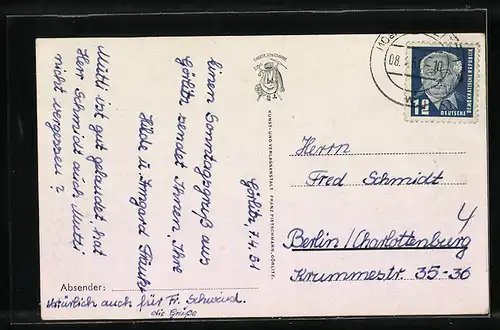 Görlitz, 7.4.51
Einen Sonntagsgruß aus
Görlitz sendet Ihnen, Ihre
Hilde u. Irmgard
Mutti ist gut gelandet hat
Herr Schmidt auch Mutti
nicht vergessen?
Absender:
Natürlich auch für Fr. Schwind.
die Grüße
KUNST- UND VERLAGSANSTALT FRANZ PIETSCHMANN, GÖRLITZ
08.
12
DEUTSCHE
DEMOKRATISCHE REPUBLIK
Herrn
Fred Schmidt
4
Berlin/Charlottenburg
Krummestr. 35-36